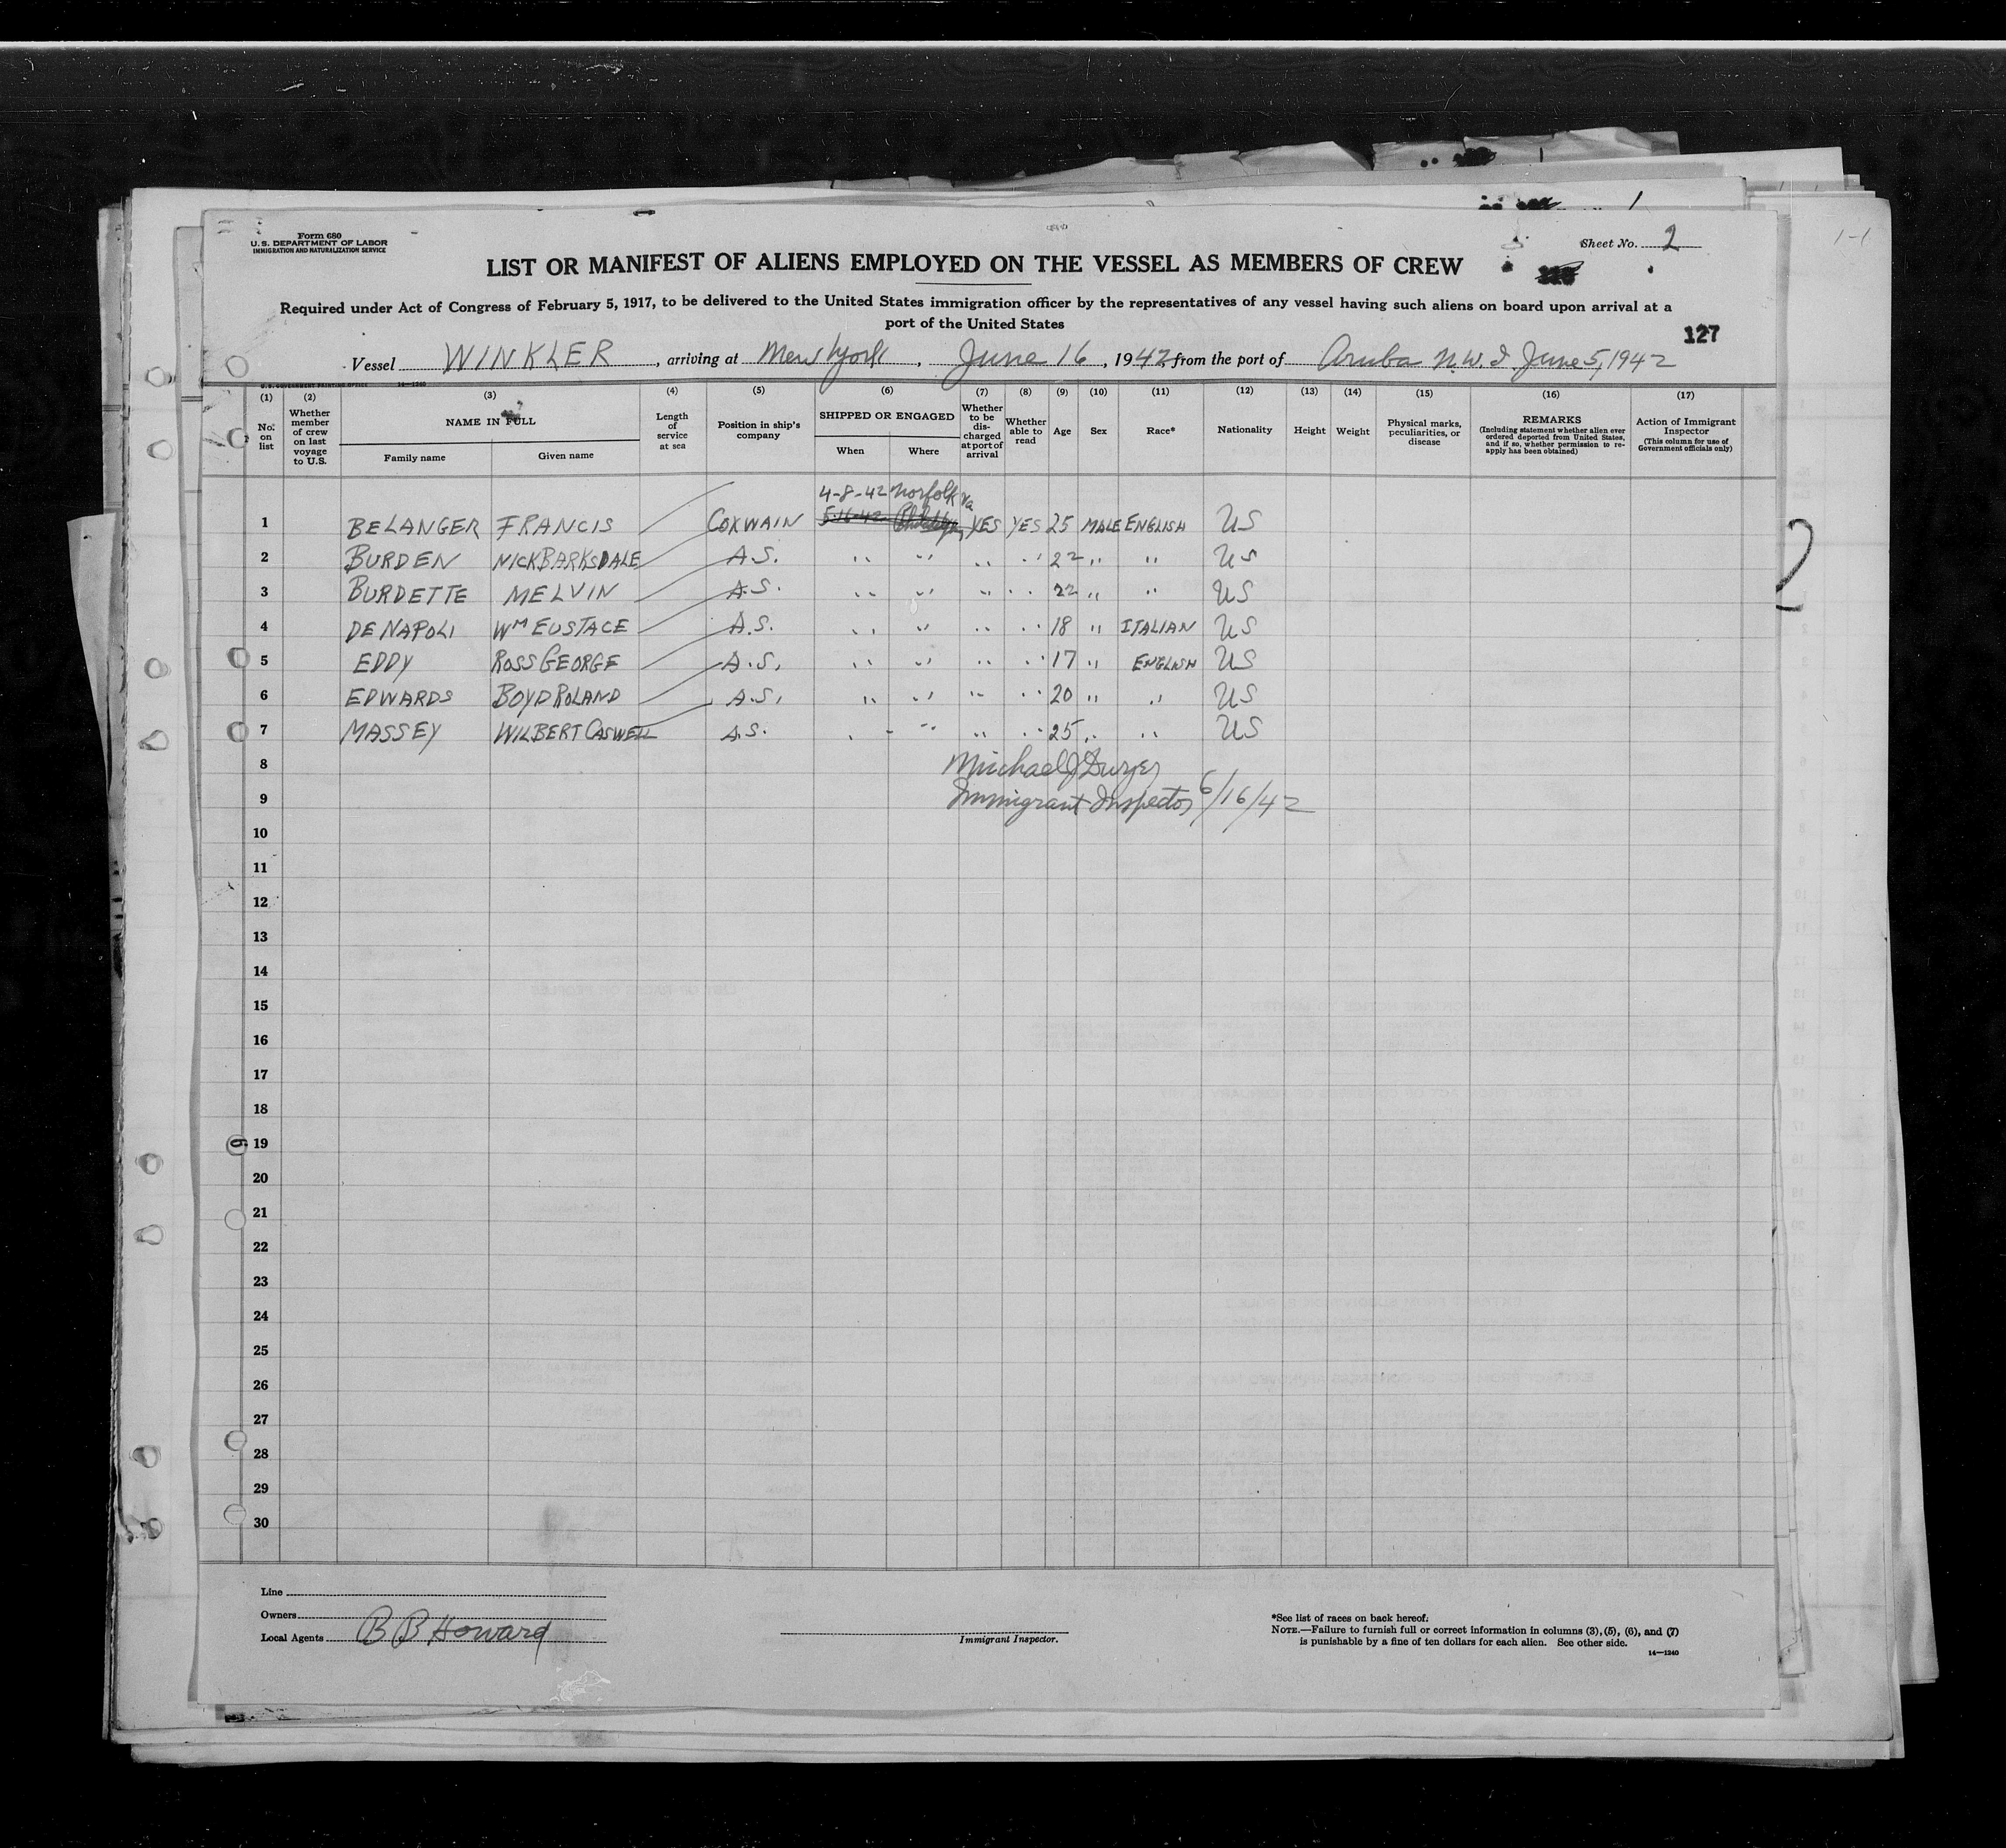 1
1-1
Form 680
U.S. DEPARTMENT OF LABOR
IMMIGRATION AND NATURALIZATION SERVICE
Sheet No. 2
LIST OR MANIFEST OF ALIENS EMPLOYED ON THE VESSEL AS MEMBERS OF CREW
Required under Act of Congress of February 5, 1917, to be delivered to the United States immigration officer by the representatives of any vessel having such aliens on board upon arrival at a
port of the United States
127
Vessel WINKLER, arriving at New York, June 16, 1942, from the port of Aruba N.W.I. June 5, 1942
U.S. GOVERNMENT PRINTING OFFICE 14—1240
(1) (2) (3) (4) (5) (6) (7) (8) (9) (10) (11) (12) (13) (14) (15) (16) (17)
No. on list
Whether member of crew on last voyage to U.S.
NAME IN FULL
Family name
Given name
Length of service at sea
Position in ship's company
SHIPPED OR ENGAGED
When
Where
Whether to be discharged at port of arrival
Whether able to read
Age
Sex
Race*
Nationality
Height
Weight
Physical marks, peculiarities, or disease
REMARKS
(Including statement whether alien ever ordered deported from United States, and if so, whether permission to reapply has been obtained)
Action of Immigrant Inspector
(This column for use of Government officials only)
4-8-42 Norfolk Va
1 BELANGER FRANCIS COXWAIN 5-16-42 YES YES 25 MALE ENGLISH US
2 BURDEN NICK BARKSDALE A.S. " " " " 22 " " US
3 BURDETTE MELVIN A.S. " " " " 22 " " US
4 DE NAPOLI WM EUSTACE A.S. " " " " 18 " ITALIAN US
5 EDDY ROSS GEORGE A.S. " " " " 17 " ENGLISH US
6 EDWARDS BOYD ROLAND A.S. " " " " 20 " " US
7 MASSEY WILBERT CASWELL A.S. " " " " 25 " " US
8 Michael J Dwyer
9 Immigrant Inspector 6/16/42
10
11
12
13
14
15
16
17
18
19
20
21
22
23
24
25
26
27
28
29
30
2
Line
Owners
Local Agents B B Howard
Immigrant Inspector.
*See list of races on back hereof.
NOTE.—Failure to furnish full or correct information in columns (3), (5), (6), and (7)
is punishable by a fine of ten dollars for each alien. See other side.
14—1240